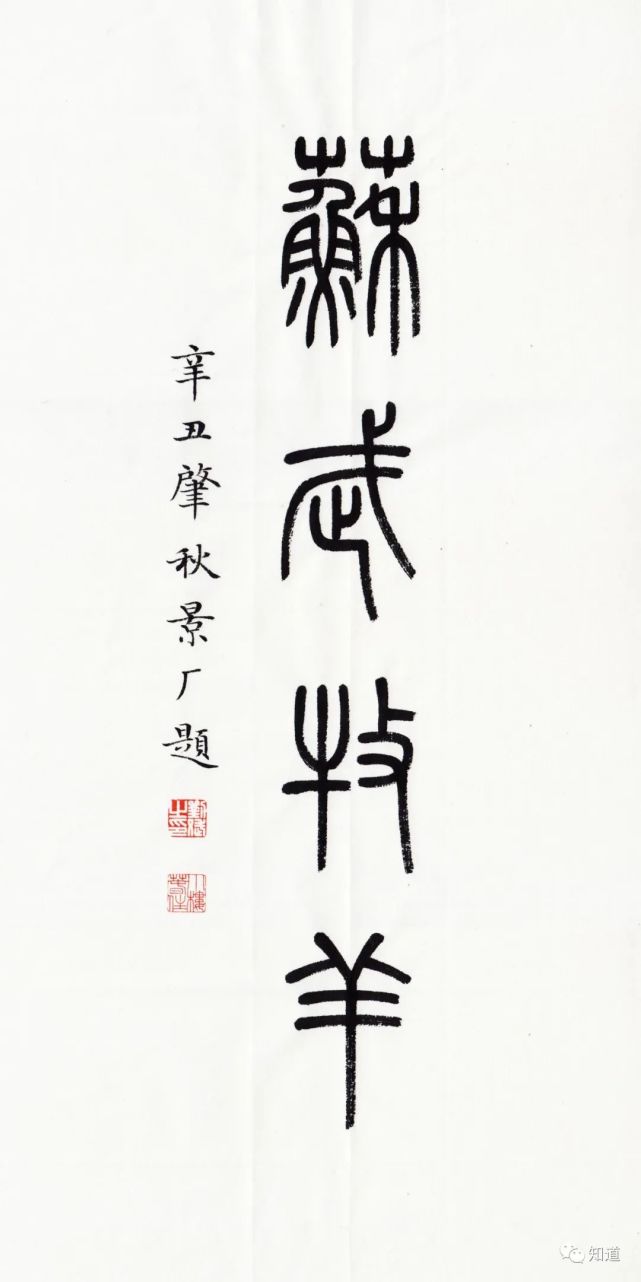 蘇武牧羊
辛丑肇秋景厂題
知道